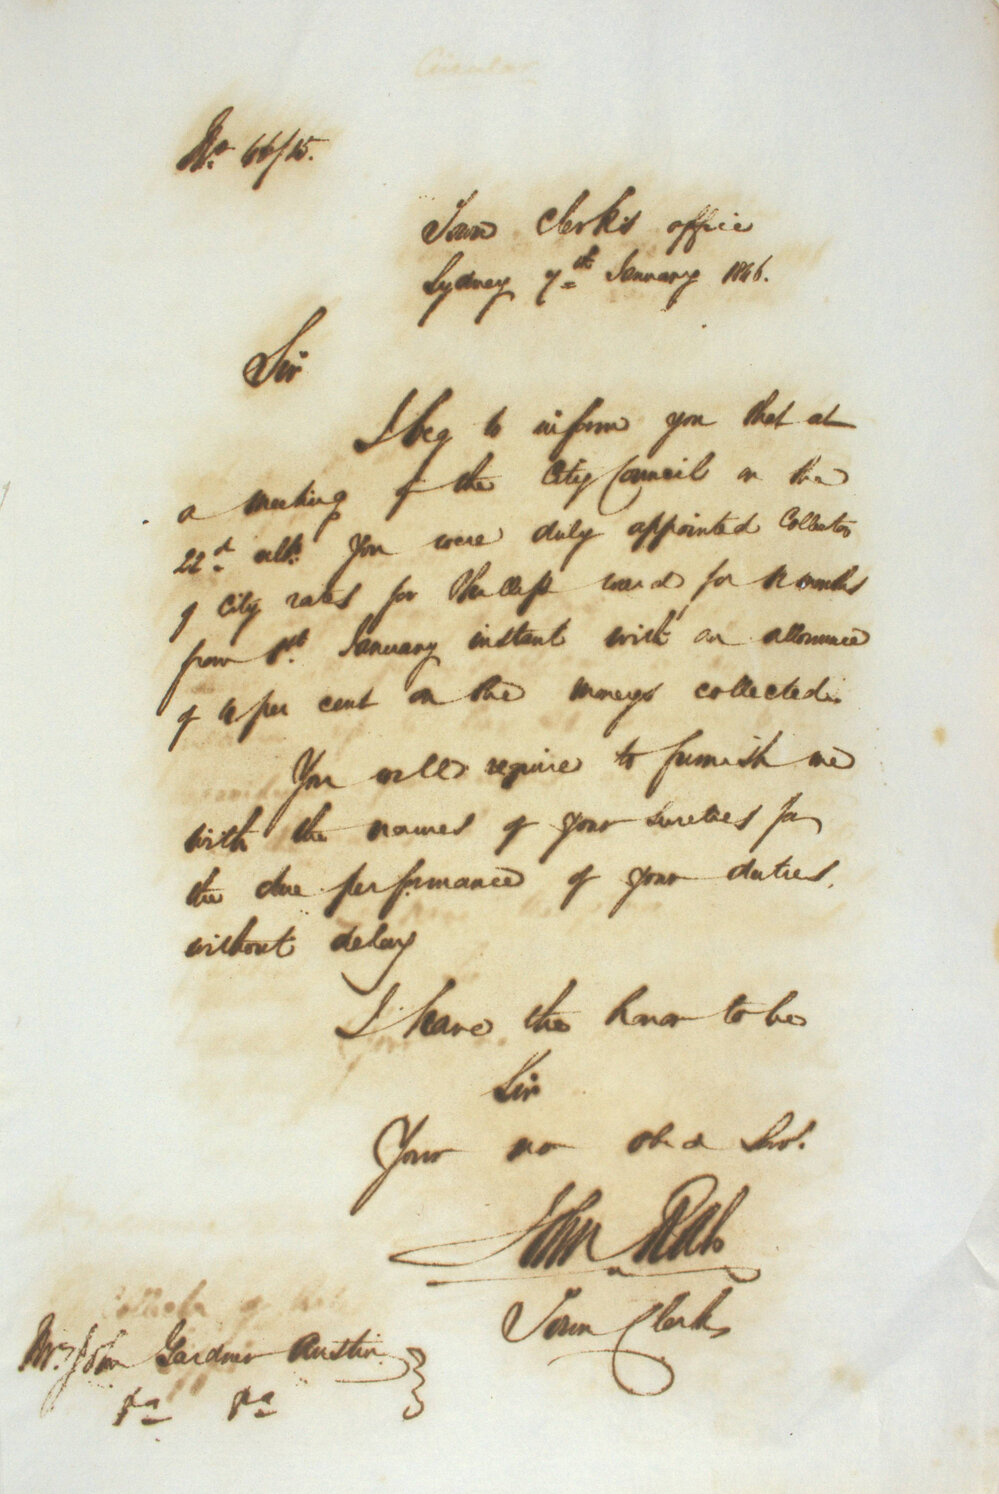 Circular
No. 46/15.
Town Clerk's office
Sydney 7th January 1846.
Sir
I beg to inform you that at
a meeting of the City Council on the
22d ult. you were duly appointed Collector
of City rates for Phillip ward for 12 months
from 1st. January instant with an allowance
of 4 per cent on the moneys collected.
You will require to furnish me
with the names of your sureties for
the due performance of your duties.
without delay
I have the honor to be
Sir
Your mo obed Servt.
John Rae
Town Clerk
Mr. John Gardner Austin